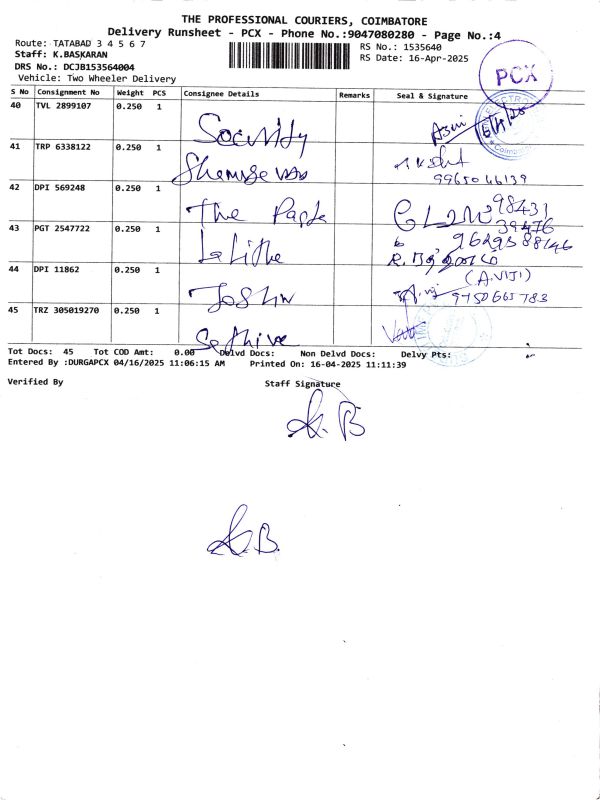 THE PROFESSIONAL COURIERS, COIMBATORE
Delivery Runsheet - PCX - Phone No.:9047080280 - Page No.:4
Route: TATABAD 3 4 5 6 7
Staff: K.BASKARAN
DRS No.: DCJB153564004
Vehicle: Two Wheeler Delivery
RS No.: 1535640
RS Date: 16-Apr-2025
PCX
S No Consignment No Weight PCS Consignee Details Remarks Seal & Signature
40 TVL 2899107 0.250 1 Security
41 TRP 6338122 0.250 1
9965046139
42 DPI 569248 0.250 1 The
98431
39476
43 PGT 2547722 0.250 1
9629588146
44 DPI 11862 0.250 1
(A.VIJI)
9750665783
45 TRZ 305019270 0.250 1
Tot Docs: 45 Tot COD Amt: 0.00 Delvd Docs: Non Delvd Docs: Delvy Pts:
Entered By :DURGAPCX 04/16/2025 11:06:15 AM Printed On: 16-04-2025 11:11:39
Verified By Staff Signature